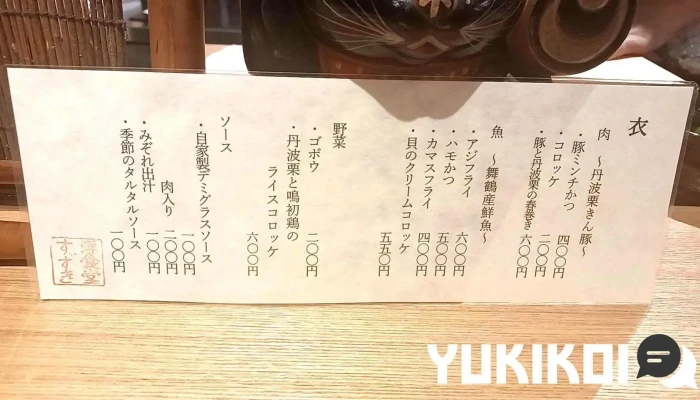 衣
肉　〜丹波栗きん豚〜
・豚ミンチかつ　四〇〇円
・コロッケ　二〇〇円
・豚と丹波栗の春巻き　六〇〇円
魚　〜舞鶴産鮮魚〜
・アジフライ　六〇〇円
・ハモかつ　五〇〇円
・カマスフライ　四〇〇円
・貝のクリームコロッケ　五五〇円
野菜
・ゴボウ　二〇〇円
・丹波栗と鳴初鶏の
ライスコロッケ　六〇〇円
ソース
・自家製デミグラスソース　一〇〇円
肉入り　二〇〇円
・みぞれ出汁　一〇〇円
・季節のタルタルソース　一〇〇円
洋食堂
すずき
YUKIKOI